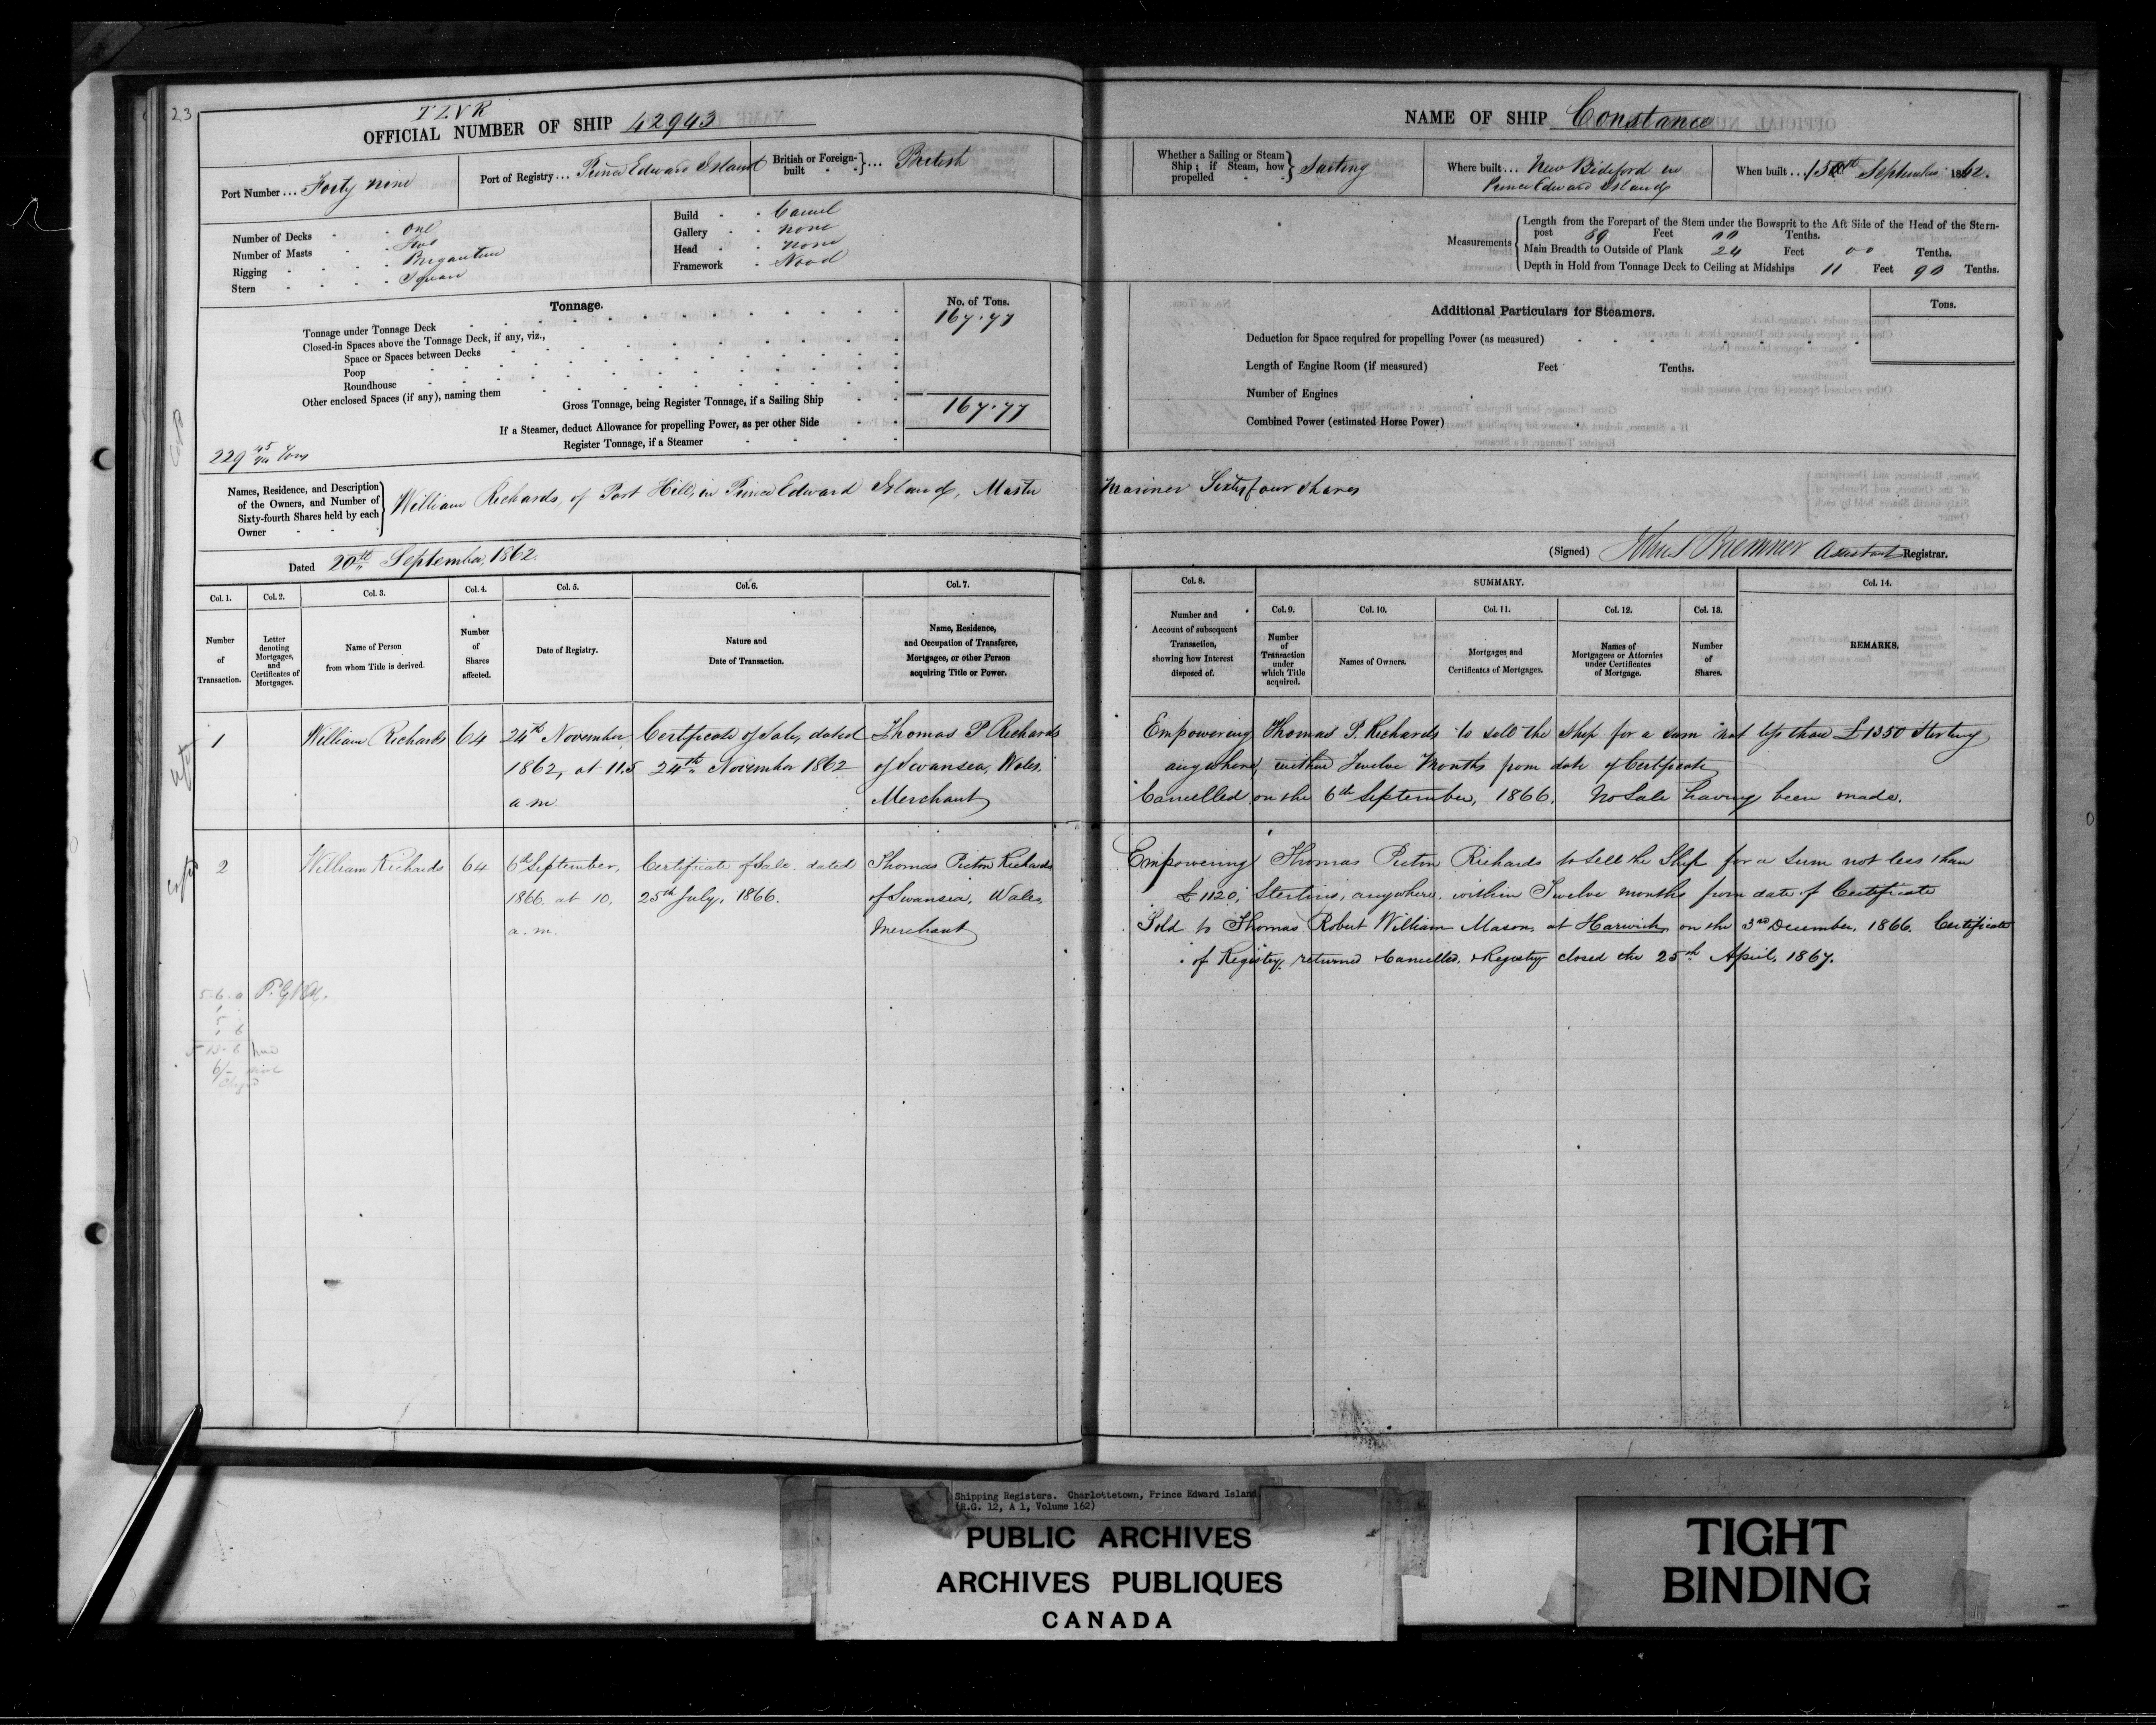 23
TLVR
OFFICIAL NUMBER OF SHIP 42943
Port Number ... Forty nine
Port of Registry ... Prince Edward Island
British or Foreign-built } ... British
Number of Decks One
Number of Masts Two
Rigging Brigantine
Stern Square
Build Carvel
Gallery None
Head None
Framework Wood
Tonnage.
No. of Tons.
Tonnage under Tonnage Deck 167.77
Closed-in Spaces above the Tonnage Deck, if any, viz.,
Space or Spaces between Decks
Poop
Roundhouse
Other enclosed Spaces (if any), naming them
Gross Tonnage, being Register Tonnage, if a Sailing Ship 167.77
If a Steamer, deduct Allowance for propelling Power, as per other Side
Register Tonnage, if a Steamer
229 45/94 Tons
Names, Residence, and Description of the Owners, and Number of Sixty-fourth Shares held by each Owner } William Richards, of Port Hill, in Prince Edward Island, Master
Dated 20th September, 1862.
Col. 1. Col. 2. Col. 3. Col. 4. Col. 5. Col. 6. Col. 7.
Number of Transaction.
Letter denoting Mortgages, and Certificates of Mortgages.
Name of Person from whom Title is derived.
Number of Shares affected.
Date of Registry.
Nature and Date of Transaction.
Name, Residence, and Occupation of Transferee, Mortgagee, or other Person acquiring Title or Power.
1 William Richards 64 24th November Certificate of Sale, dated Thomas P Richards
1862, at 11.5 24th November 1862 of Swansea, Wales.
a.m. Merchant
2 William Richards 64 6th September, Certificate of Sale. dated Thomas Picton Richards
1866. at 10, 25th July, 1866. of Swansea, Wales,
a.m. Merchant
5.6.0
5
6
5 13.6
6/-
NAME OF SHIP Constance
Whether a Sailing or Steam Ship; if Steam, how propelled } Sailing
Where built ... New Bideford in
Prince Edward Island
When built ... 15th September 1862.
Measurements
Length from the Forepart of the Stem under the Bowsprit to the Aft Side of the Head of the Stern-
post 89 Feet Tenths.
Main Breadth to Outside of Plank 24 Feet 00 Tenths.
Depth in Hold from Tonnage Deck to Ceiling at Midships 11 Feet 90 Tenths.
Additional Particulars for Steamers.
Tons.
Deduction for Space required for propelling Power (as measured)
Length of Engine Room (if measured) Feet Tenths.
Number of Engines
Combined Power (estimated Horse Power)
Mariner Sixty four shares
(Signed) John S Bremner Assistant Registrar.
Col. 8. SUMMARY. Col. 14.
Col. 9. Col. 10. Col. 11. Col. 12. Col. 13.
Number and Account of subsequent Transaction, showing how Interest disposed of.
Number of Transaction under which Title acquired.
Names of Owners.
Mortgages and Certificates of Mortgages.
Names of Mortgagees or Attornies under Certificates of Mortgage.
Number of Shares.
REMARKS.
Empowering Thomas P. Richards to sell the Ship for a sum not less than £1350 Sterling
anywhere, within Twelve Months from date of Certificate
Cancelled on the 6th September, 1866. No Sale having been made.
Empowering Thomas Picton Richards to sell the Ship for a sum not less than
£1120, Sterling, anywhere. within Twelve months from date of Certificate
Sold to Thomas Robert William Mason, at Harwich, on the 3rd December, 1866. Certificate
of Registry returned & Cancelled. & Registry closed the 25th April, 1867.
Shipping Registers. Charlottetown, Prince Edward Island
(R.G. 12, A 1, Volume 162)
PUBLIC ARCHIVES
ARCHIVES PUBLIQUES
CANADA
TIGHT
BINDING